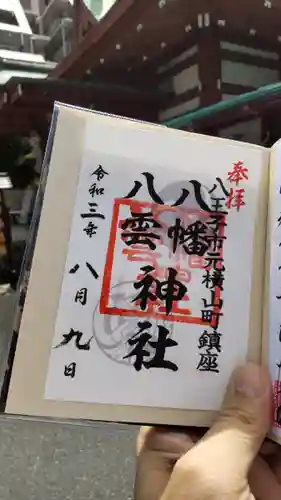 奉拝
八王子市元横山町鎮座
八幡
八雲神社
令和三年
八月九日